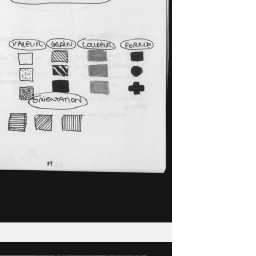 VALEUR GRAIN COULEUR FORME
ORIENTATION